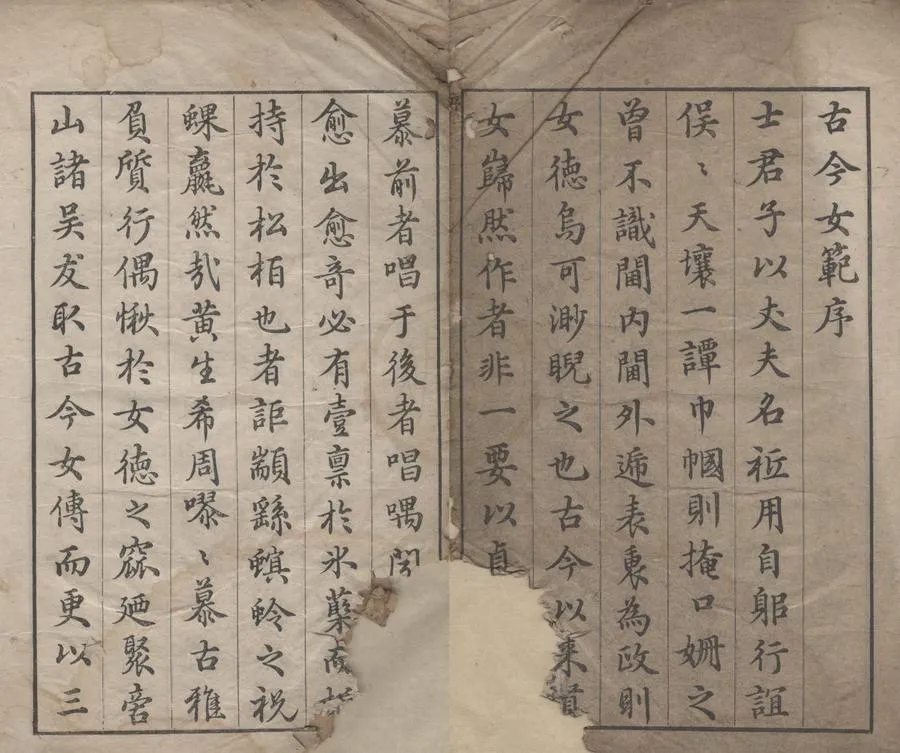 古今女範序
士君子以丈夫名衹用自躬行誼
俁〻天壤一譚巾幗則掩口姍之
曾不識閫内閫外遞表裏為政則
女德烏可渺睨之也古今以來道
女歸然作者非一要以貞
慕前者唱于後者唱喁
愈出愈奇必有壹禀於氷蘗
持於松栢也者詎顓繇螟蛉之祝
蜾蠃然哉黄生希周嘐〻慕古雅
負質行偶愀於女德之窳廼聚旁
山諸吴友取古今女傳而更以三